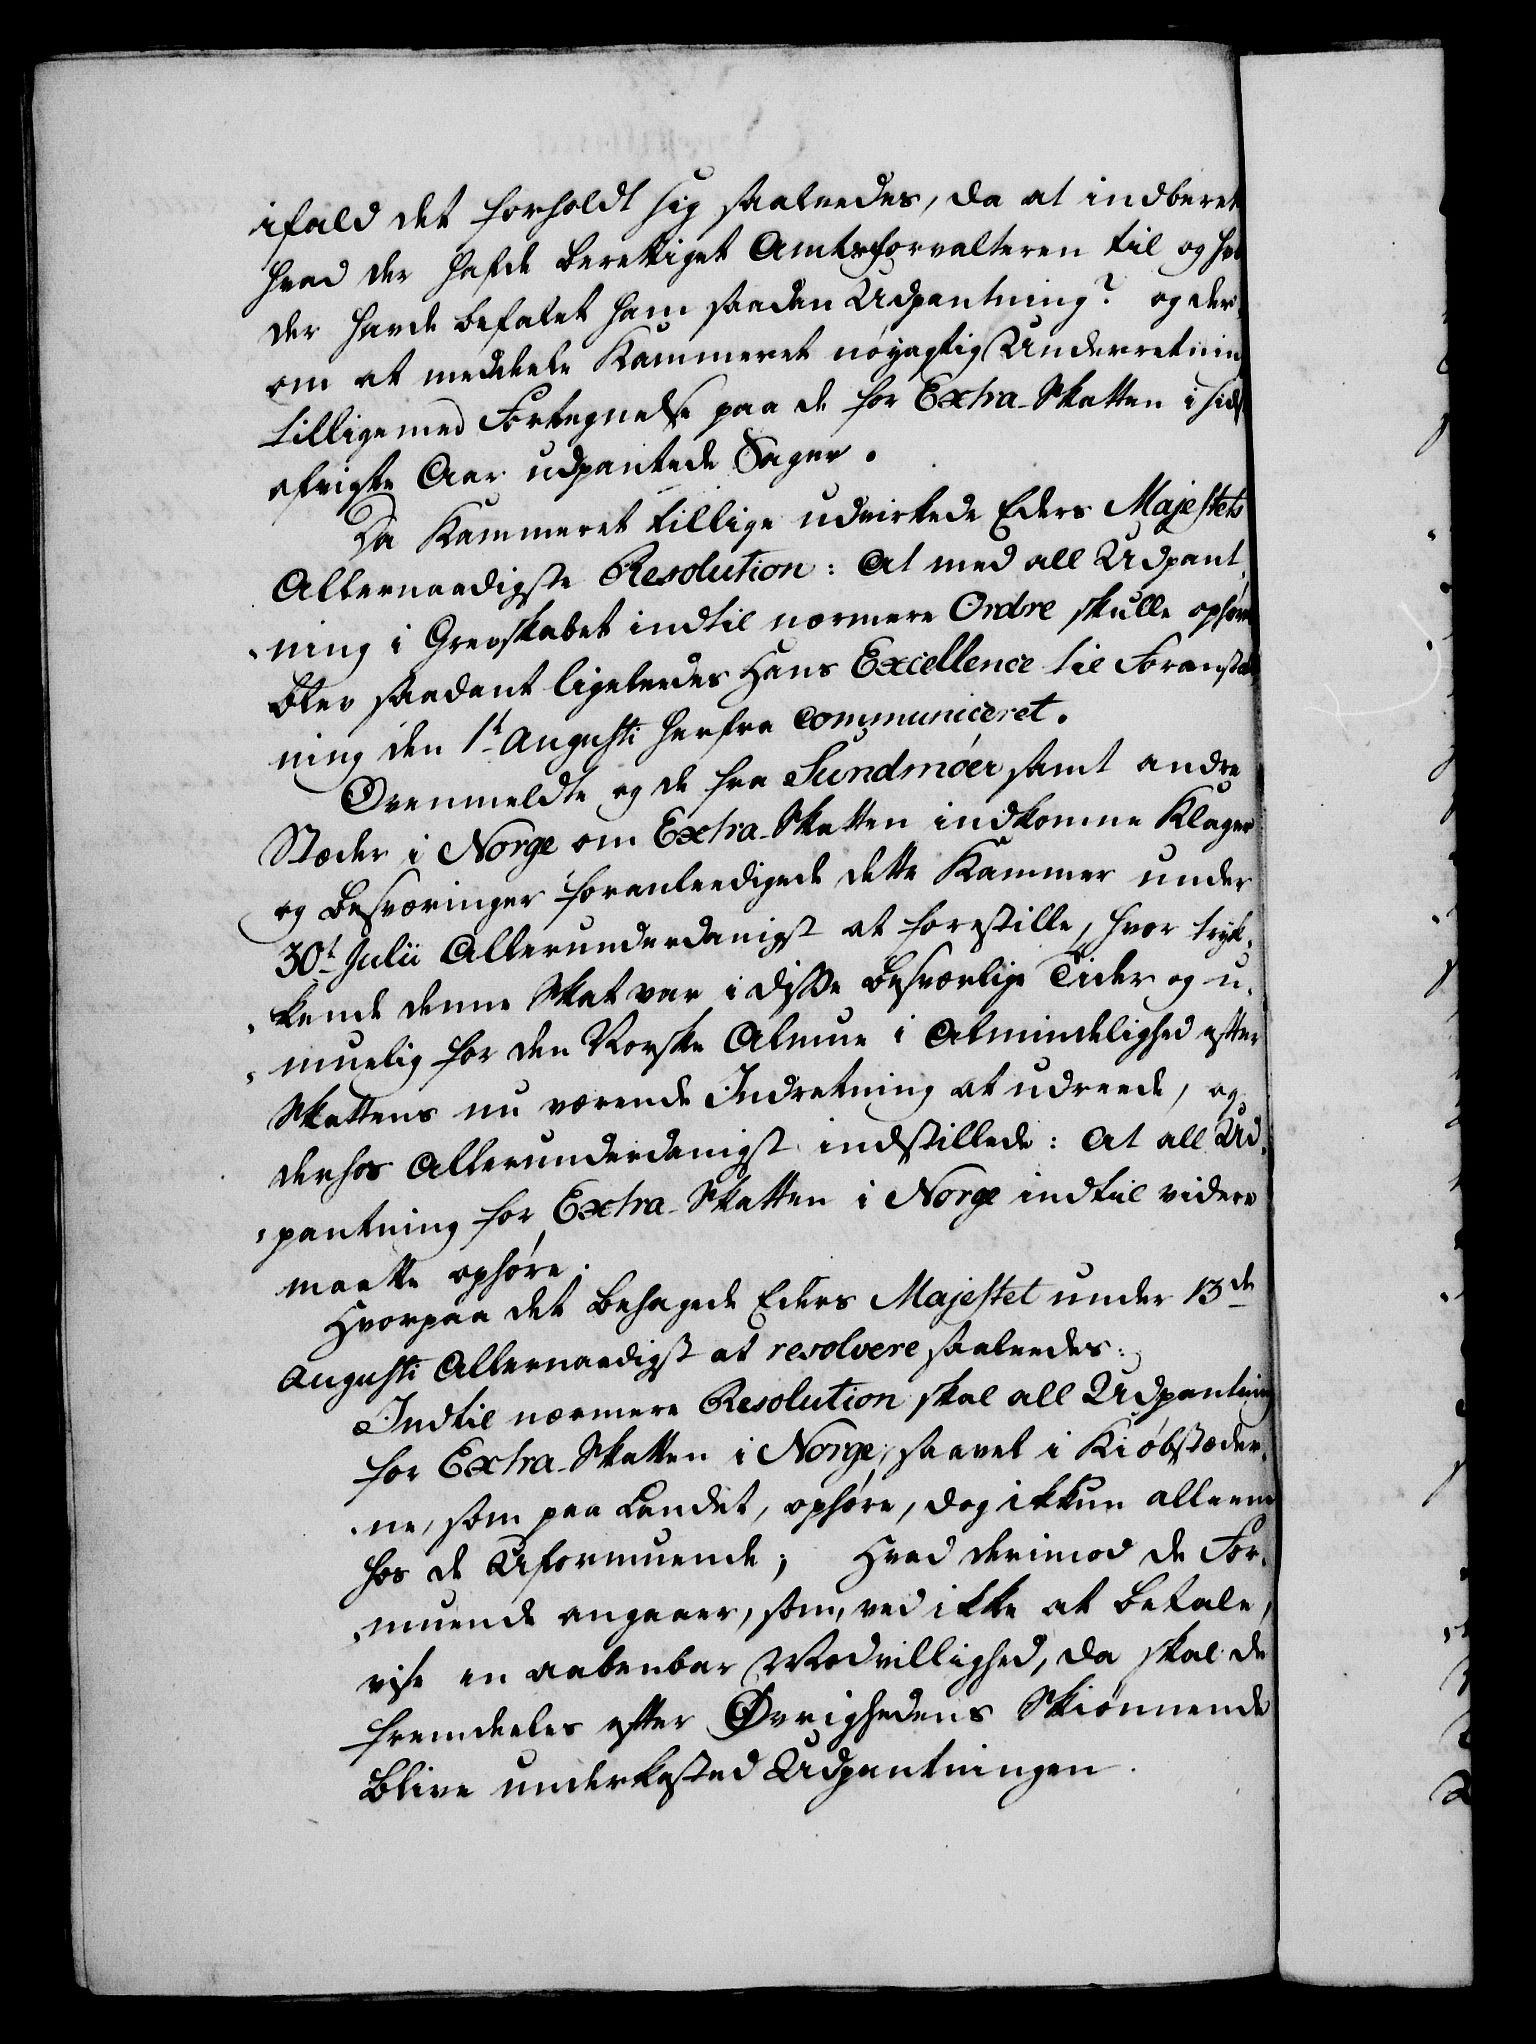 ifald det forholdt sig saaleedes, da at indberet
hvad der hafde berettiget Amtsforvalteren til og hvo
der havde befalet ham saaden Udpantning? og der
om at meddeele Kammeret nøyagtig Underretnin
tilligemed Fortegnelse paa de for Extra-Skatten i sidst
afvigte Aar udpantede Sager.
Da Kammeret tillige udvirkede Eders Majestets
Allernaadigste Resolution: At med all Udpant
ning i Grevskabet indtil nærmere Ordre skulle ophøre
blev saadant ligeleedes Hans Excellence til Foranstalt
ning den 1t Augusti herfra communiceret.
Ovenmeldte og de fra Sundmøer samt andre
Stæder i Norge om Extra-Skatten indkomne Klager
og Besværinger foranleedigede dette Kammer under
30t Julii Allerunderdanigst at forestille, hvor tryk,
kende denne Skat var i disse besværlige Tider og u,
muelig for den Norske Almue i Almindelighed efter
Skattens nu værende Indretning at udreede, og
derhos Allerunderdanigst indstillede: At all Ud,
pantning for Extra-Skatten i Norge indtil videre
maatte ophøre.
Hvorpaa det behagede Eders Majestet under 13de
Augusti Allernaadigst at resolvere saaleedes:
Indtil nærmere Resolution skal all Udpantning
for Extra-Skatten i Norge, saavel i Kiøbstæder,
ne, som paa Landet, ophøre, dog ikkun alleene
hos de Uformuende; Hvad derimod de For,
muende angaaer, som, ved ikke at betale,
vise en aabenbar Modvillighed, da skal de
fremdeeles efter Øvrighedens Skiønnende
blive underkasted Udpantningen.